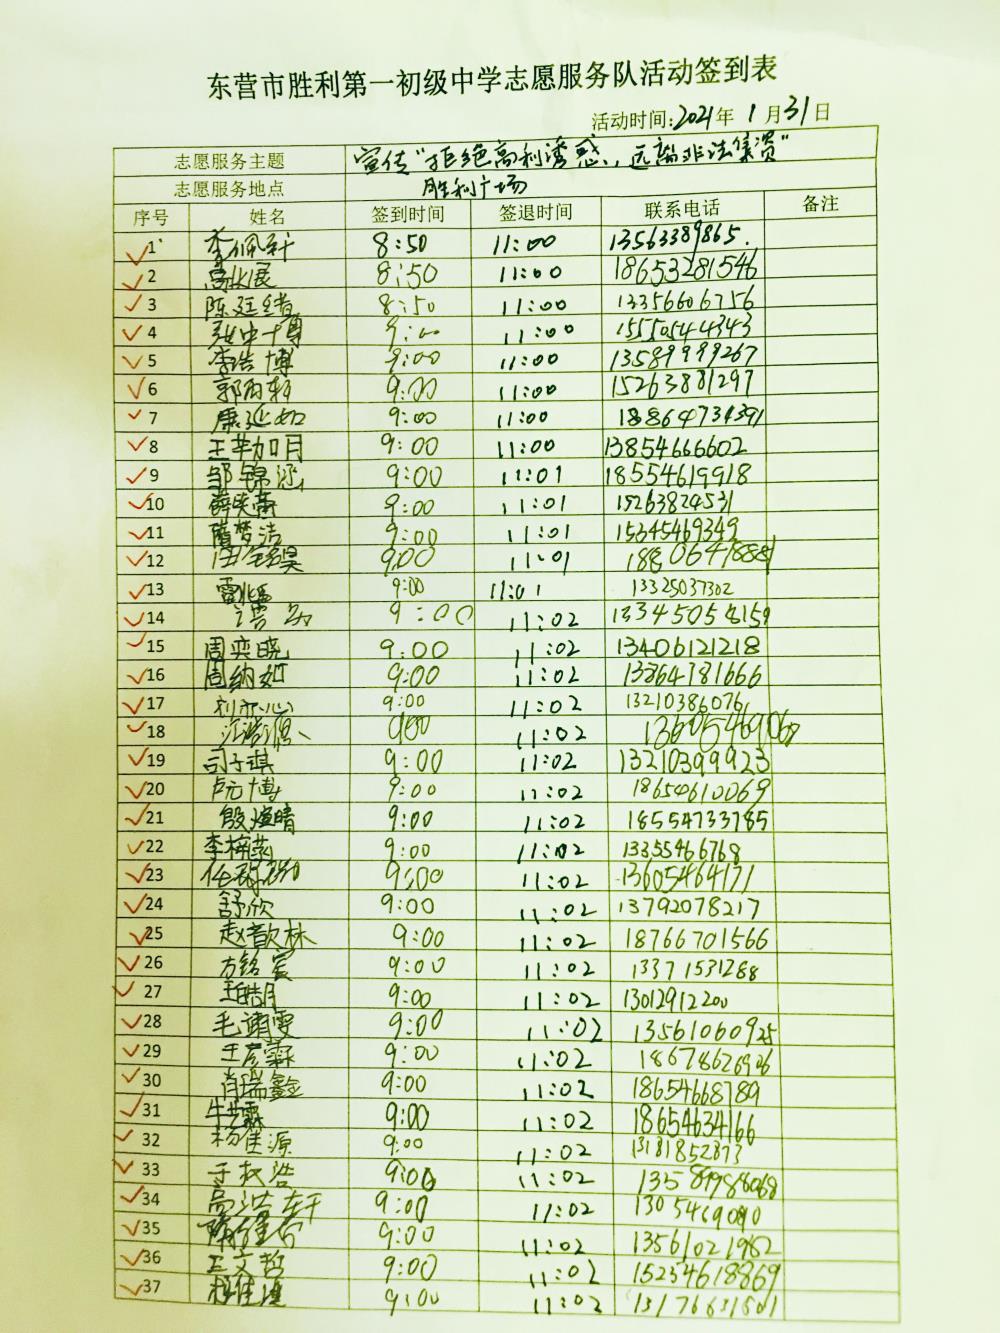 东营市胜利第一初级中学志愿服务队活动签到表
活动时间:2021年 1月31日
志愿服务主题 宣传"拒绝高利诱惑,远离非法集资"
志愿服务地点 胜利广场
序号 姓名 签到时间 签退时间 联系电话 备注
1 李佩轩 8:50 11:00 13563389865.
2 高兆展 8:50 11:00 18653281546
3 陈廷绪 8:50 11:00 13356606756
4 张中博 9:00 11:00 15550544343
5 李浩博 9:00 11:00 13589999267
6 郭雨轩 9:00 11:00 15263881297
7 康延如 9:00 11:00 18864734391
8 王芊加月 9:00 11:00 13854666602
9 邹锦涵 9:00 11:01 18554619918
10 9:00 11:01 15263824531
11 隋梦洁 9:00 11:01 15345469349
12 9:00 11:01 18806418881
13 9:00 11:01 13325037302
14 9:00 11:02 13345058159
15 周奕晓 9:00 11:02 13406121218
16 周纳如 9:00 11:02 13864381666
17 刘亦心 9:00 11:02 13210386076
18 9:00 11:02 13605469068
19 司子琪 9:00 11:02 13210399923
20 卢元博 9:00 11:02 18654610069
21 殷煊晴 9:00 11:02 18554733785
22 李梓菡 9:00 11:02 13355466768
23 9:00 11:02 13605464171
24 舒欣 9:00 11:02 13792078217
25 赵歆林 9:00 11:02 18766701566
26 方铭宸 9:00 11:02 13371531288
27 王皓月 9:00 11:02 13012912200
28 毛靖雯 9:00 11:02 13561060925
29 王彦霖 9:00 11:02 18678626926
30 肖瑞鑫 9:00 11:02 18654668789
31 牛艺霖 9:00 11:02 18654634166
32 杨佳源 9:00 11:02 13181852873
33 于权浩 9:00 11:02 13589988068
34 高浩轩 9:00 11:02 1305469090
35 9:00 11:02 13561021982
36 王文哲 9:00 11:02 15254618869
37 9:00 11:02 13176631801